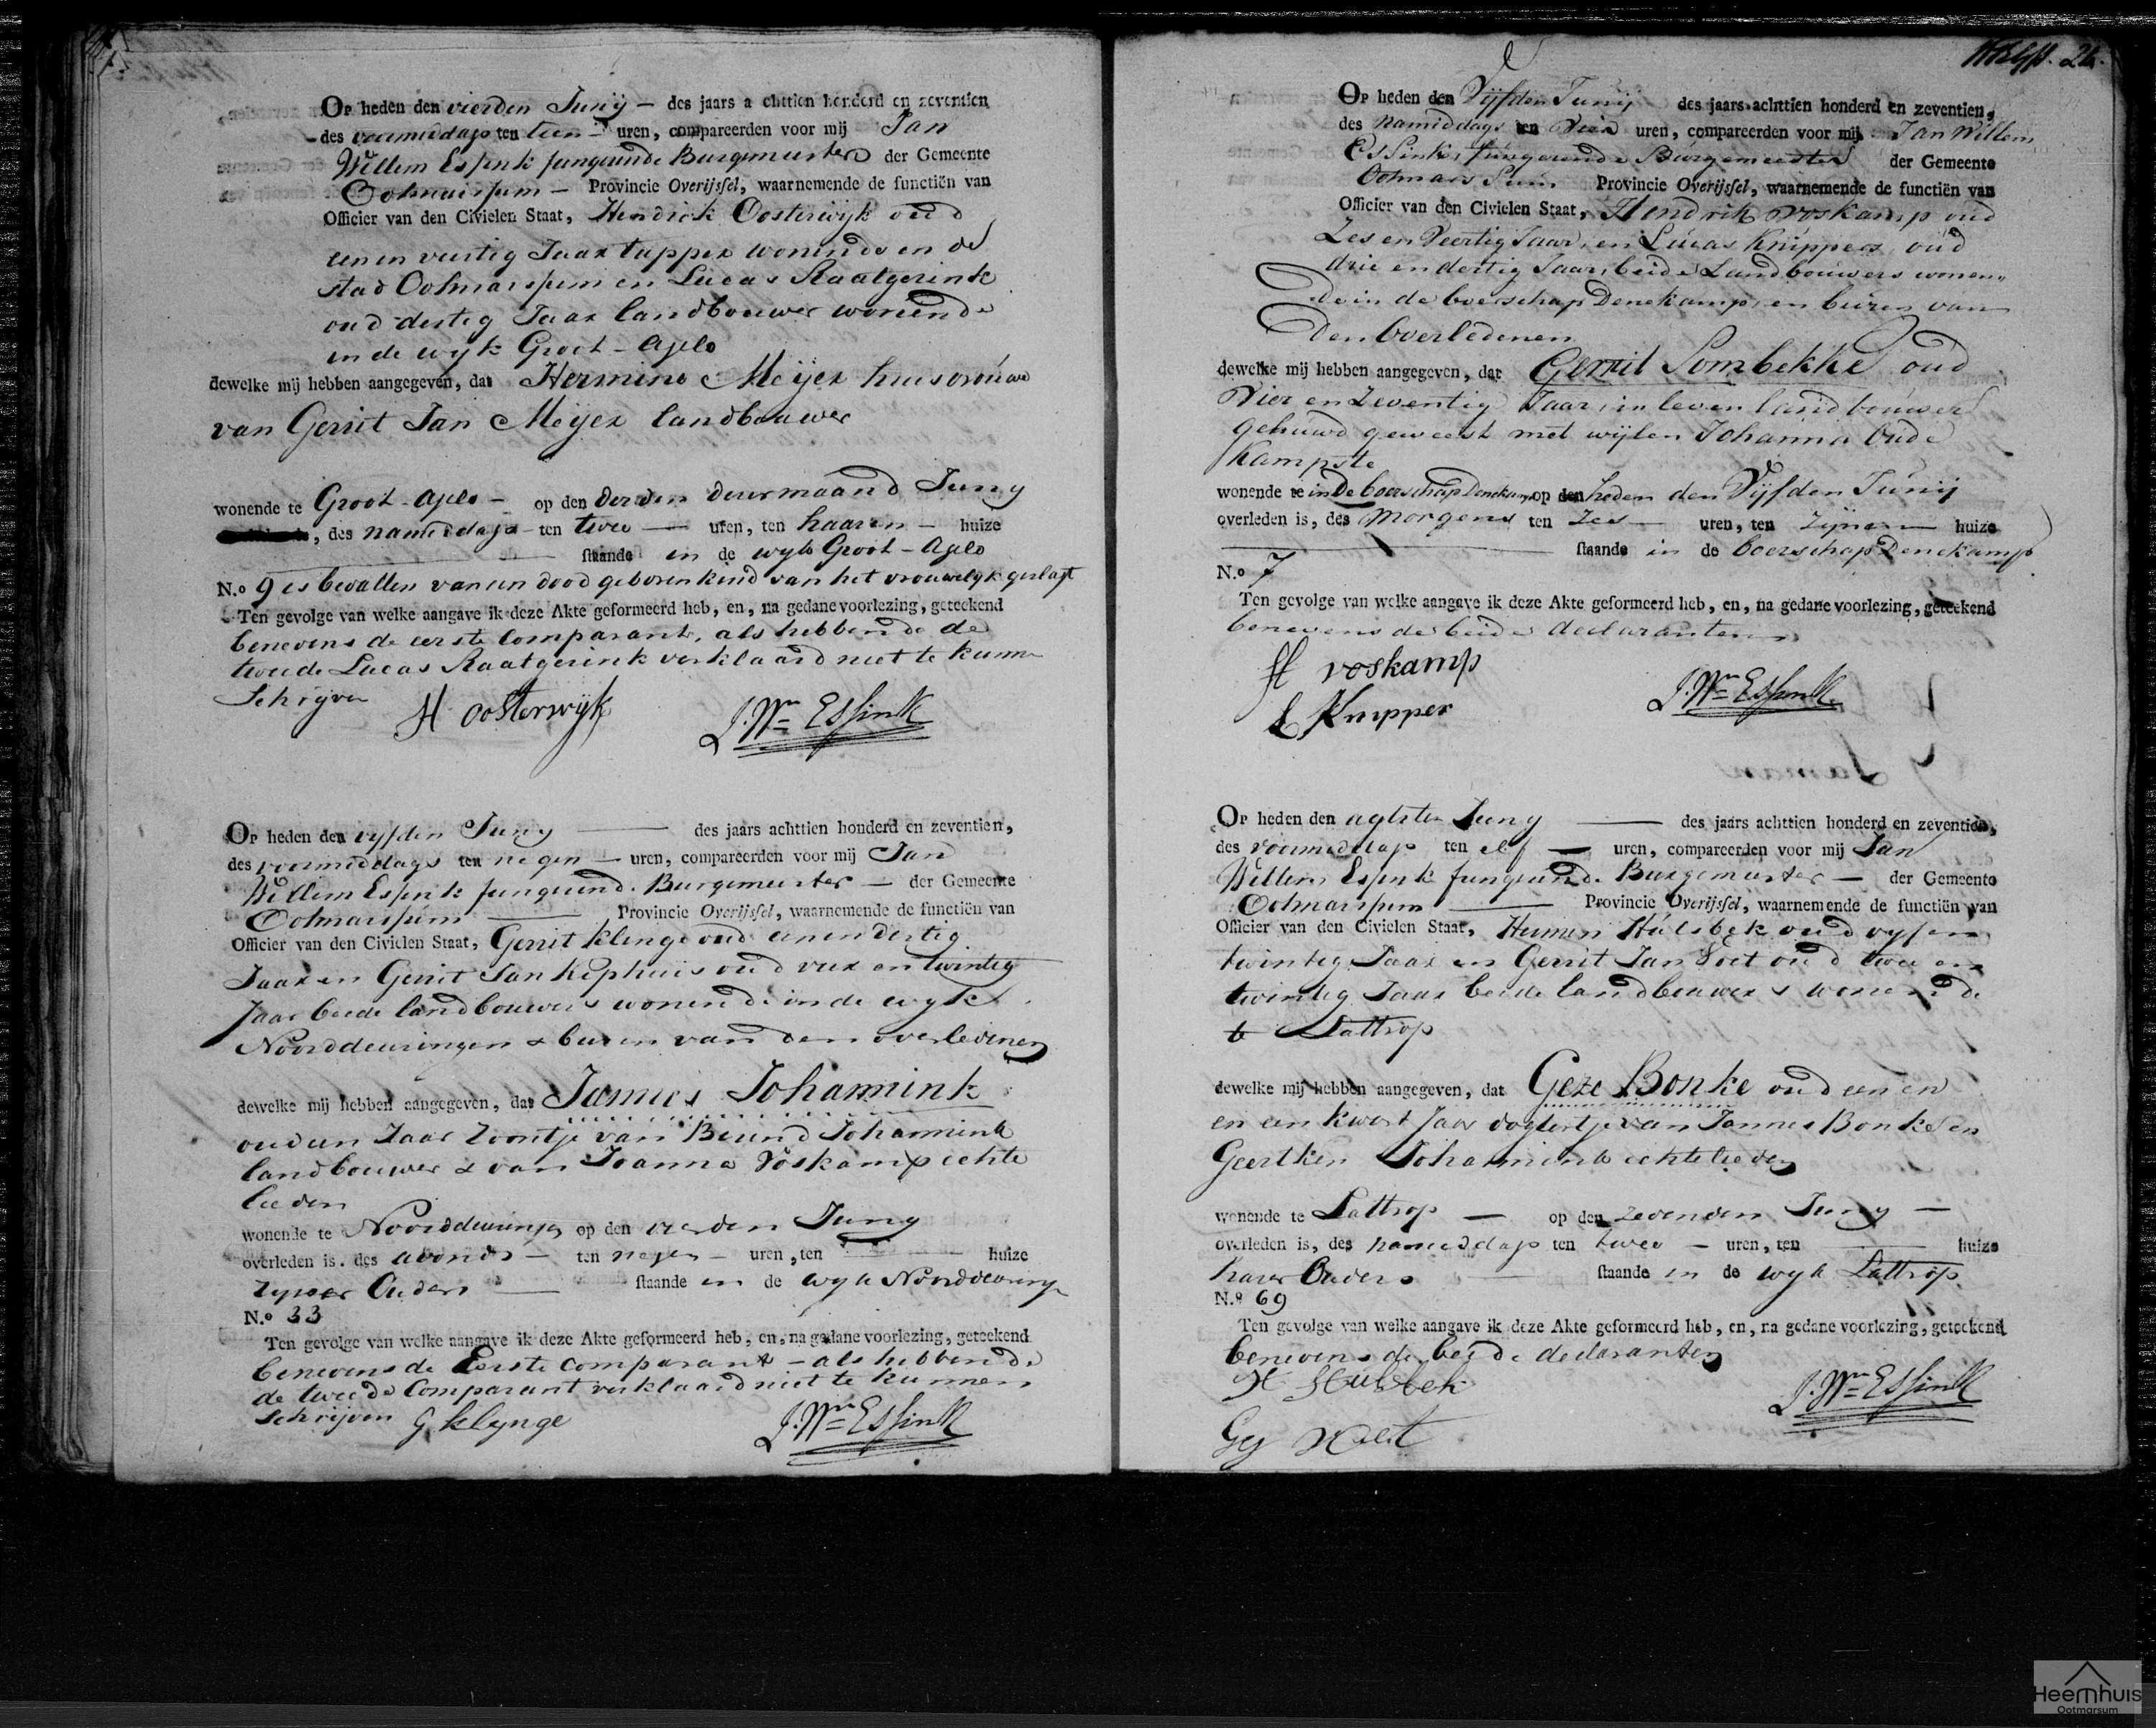 Op heden den vierden Junij — des jaars a chttien honderd en zeventien
des voormiddags ten tien — uren, compareerden voor mij Jan
Willem Essink fungerende Burgemeester der Gemeente
Ootmarssum — Provincie Overijssel, waarnemende de functiën van
Officier van den Civielen Staat, Hendrik Oosterwijk oud
een en veertig Jaar tapper wonende in de
stad Ootmarssum en Lucas Raatgerink
oud dertig Jaar landbouwer wonende
in de wijk Groot-Agelo
dewelke mij hebben aangegeven, dat Hermine Meijer huisvrouw
van Gerrit Jan Meijer landbouwer
wonende te Groot-Agelo — op den derden dezer maand Juny
, des namiddags — ten twee — uren, ten haaren — huize
— staande in de wyk Groot-Agelo
N.o 9 is bevallen van een dood geboren kind van het vrouwelyk geslagt
Ten gevolge van welke aangave ik deze Akte geformeerd heb, en, na gedane voorlezing, geteekend
benevens de eerste Comparant, als hebbende de
tweede Lucas Raatgerink verklaard niet te kunnen
Schrijven
H oosterwijk
J. Wm Essink
Op heden den vyfden Juny — des jaars achttien honderd en zeventien,
des voormiddags ten negen — uren, compareerden voor mij Jan
Willem Essink fungerend. Burgemeester — der Gemeente
Ootmarssum — Provincie Overijssel, waarnemende de functiën van
Officier van den Civielen Staat, Gerrit Klinge oud een en dertig
Jaar en Gerrit Jan Kiphuis oud vier en twintig
Jaar beede landbouwers wonende in de wyk
Noorddeuringen & buren van den overledenen
dewelke mij hebben aangegeven, dat Jannes Johannink
oud een Jaar zoontje van Berend Johannink
landbouwer & van Joanna Voskamp echte
lieden
wonende te Noorddeuringen op den vierden Juny
overleden is, des avonds — ten negen — uren, ten — huize
zyner Ouders — staande in de wyk Noorddeuringe
N.o 33
Ten gevolge van welke aangave ik deze Akte geformeerd heb, en, na gedane voorlezing, geteekend
benevens de Eerste Comparant — als hebbende
de tweede Comparant verklaard niet te kunnen
schrijven
G klynge
J. Wm Essink
26.
Op heden den Vijfden Junij des jaars achttien honderd en zeventien,
des Namiddags ten Vier uren, compareerden voor mij Jan Willem
Essink, fungerende Burgemeester der Gemeente
Ootmarssum Provincie Overijssel, waarnemende de functiën van
Officier van den Civielen Staat, Hendrik Voskamp oud
Zes en Veertig Jaar, en Lucas Knippers, oud
drie en dertig Jaar, beide Landbouwers wonen„
de in de boerschap Denekamp, en buren van
den Overledenen
dewelke mij hebben aangegeven, dat Gerrit Sombekke oud
Vier en Zeventig Jaar, in leven landbouwer
gehuwd geweest met wijlen Johanna Oude
Kampste
wonende te in de boerschap Denekamp op den heden den Vijfden Junij
overleden is, des Morgens ten Zes — uren, ten Zijnen — huize
— staande in de boerschap Denekamp
N.o 7
Ten gevolge van welke aangave ik deze Akte geformeerd heb, en, na gedane voorlezing, geteekend
benevens de beide declaranten
H voskamp
L Knipper
J. Wm Essink
Op heden den agtsten Juny — des jaars achttien honderd en zeventien,
des voormiddags ten elf — uren, compareerden voor mij Jan
Willem Essink fungerend. Burgemeester — der Gemeente
Ootmarssum — Provincie Overijssel, waarnemende de functiën van
Officier van den Civielen Staat, Hermen Hulsbek oud vyf en
twintig Jaar en Gerrit Jan Voet oud twee en
twintig Jaar beide landbouwers wonende
te Lattrop
dewelke mij hebben aangegeven, dat Geze Bonke oud een en
en een kwart Jaar dogtertje van Jannes Bonke en
Geertken Johannink echtelieden
wonende te Lattrop — op den zevenden Juny —
overleden is, des namiddags ten twee — uren, ten — huize
harer Ouders — staande in de wyk Lattrop
N.o 69
Ten gevolge van welke aangave ik deze Akte geformeerd heb, en, na gedane voorlezing, geteekend
benevens de beyde declaranten
H Hulsbek
J. Wm Essink
Heemhuis
Ootmarsum